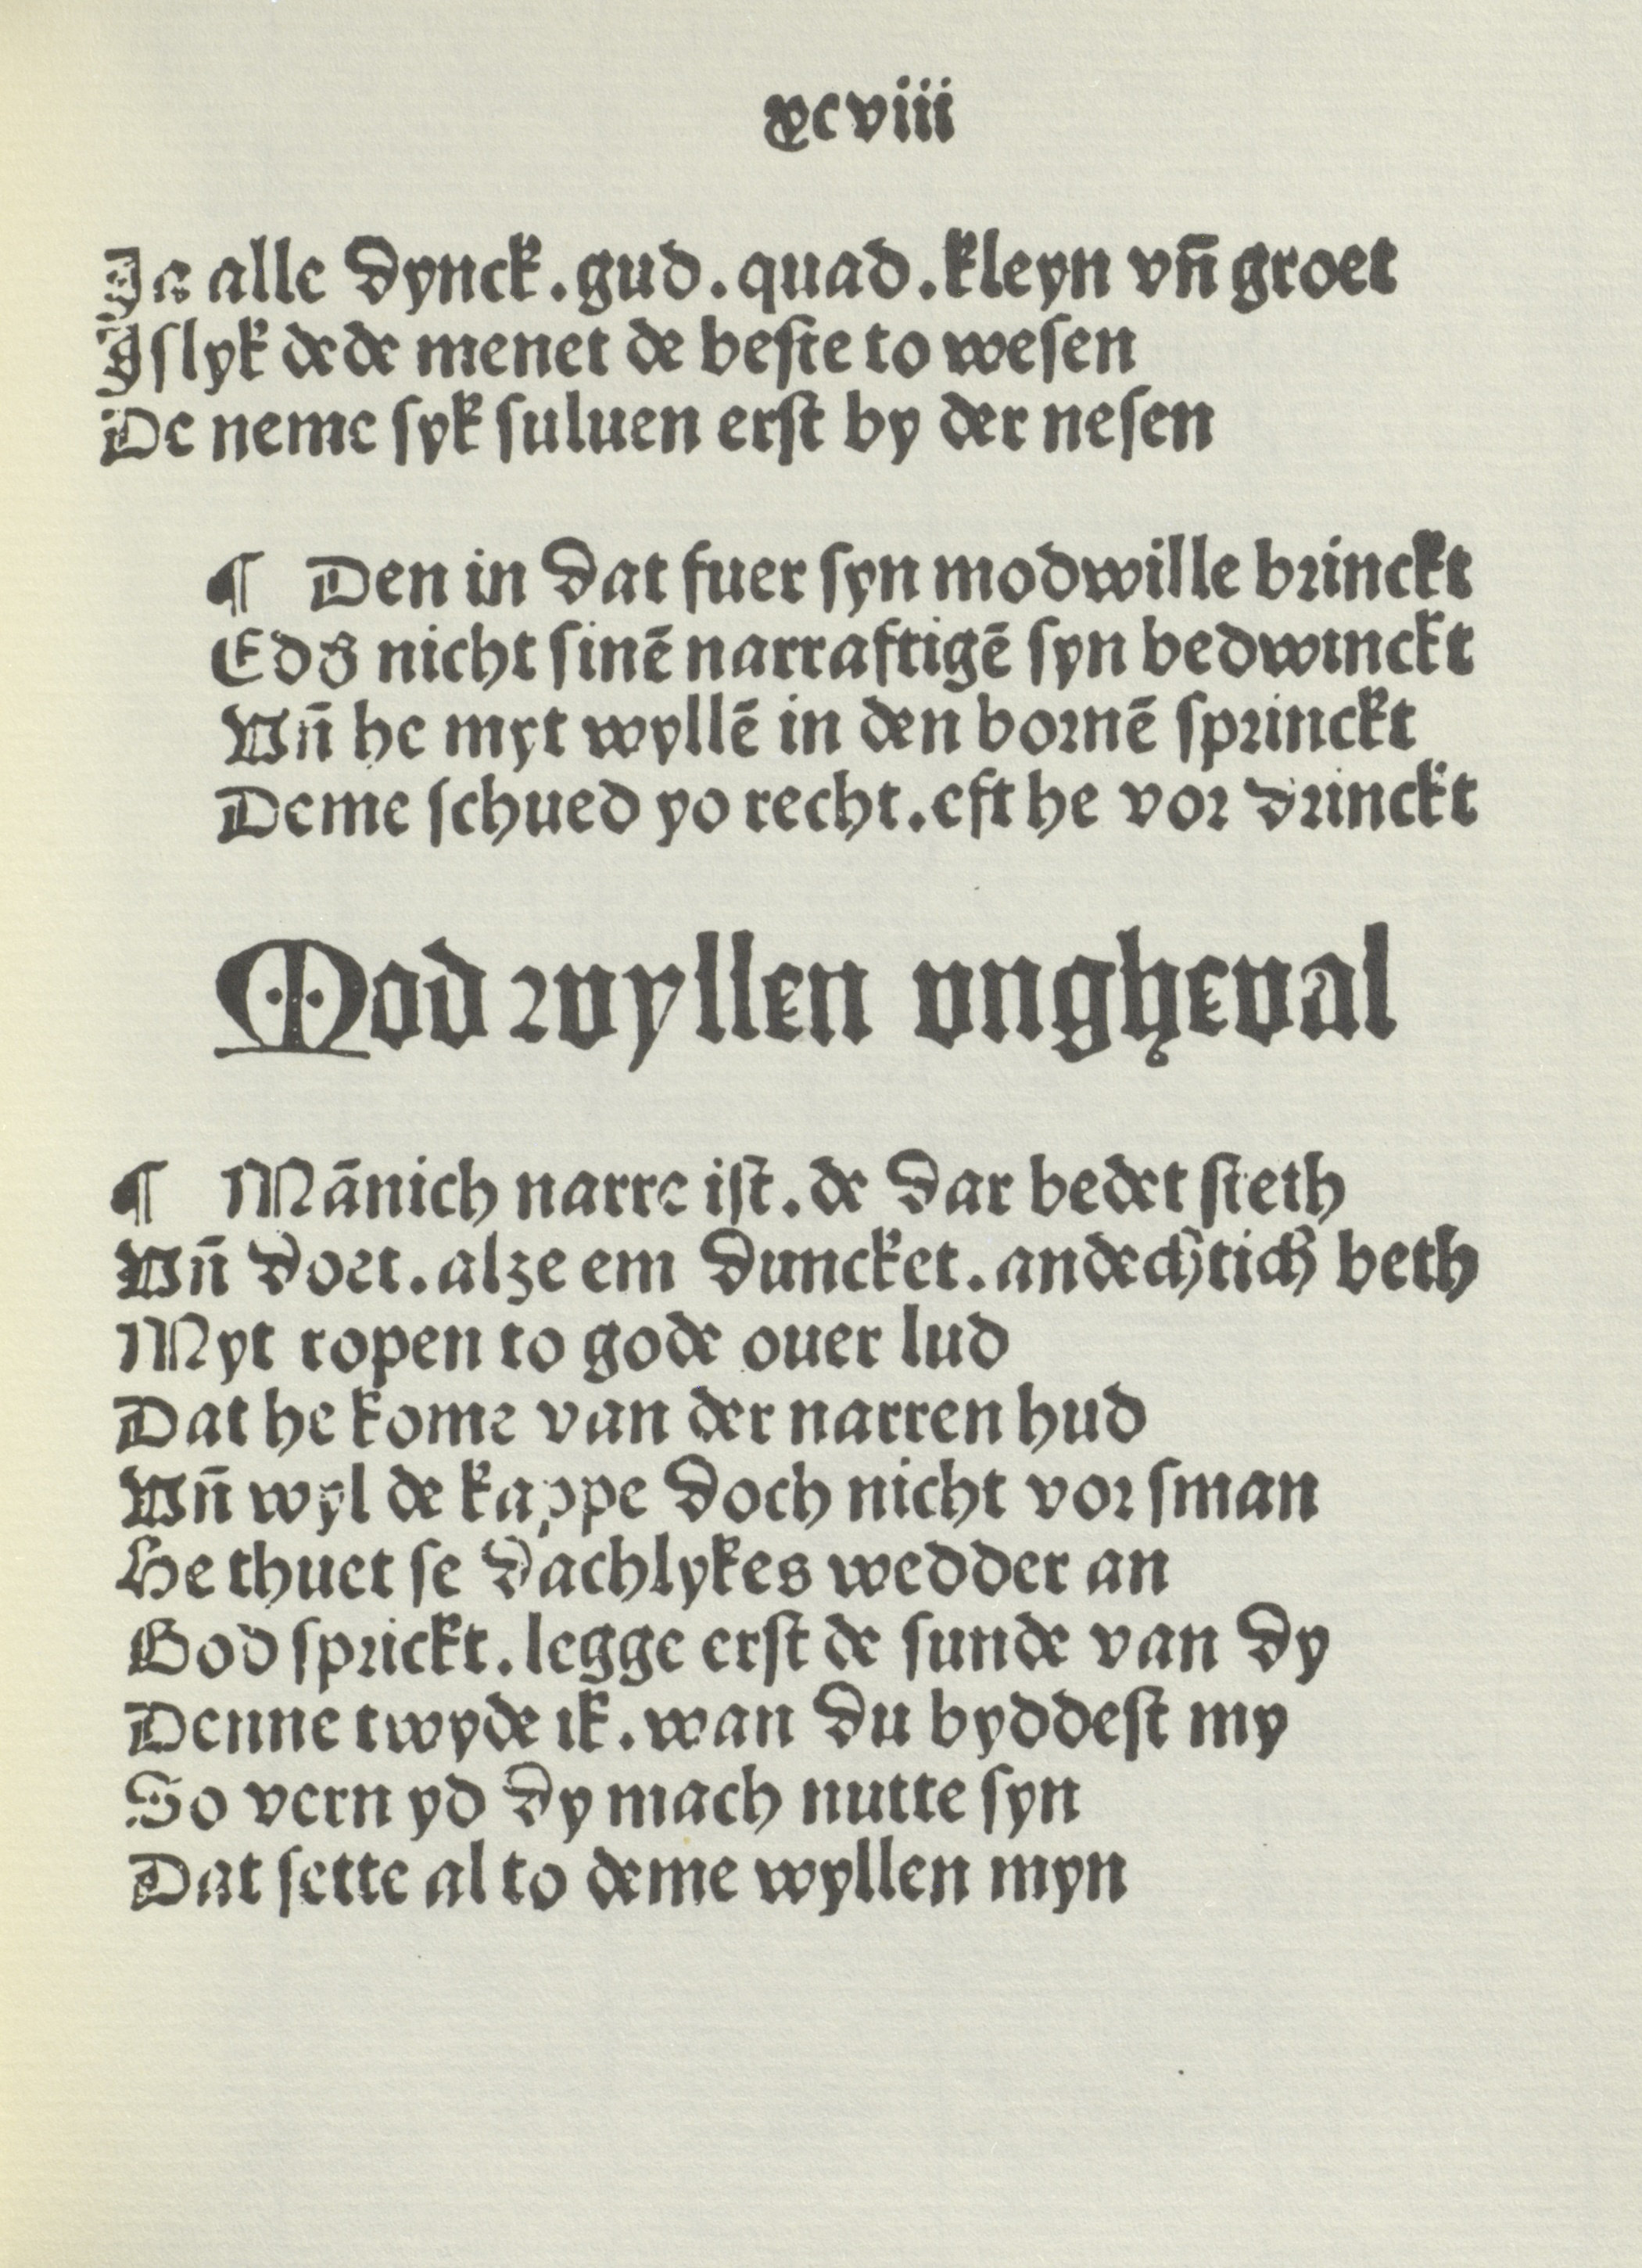 xcviii
Ja alle dynck. gud. quad. kleyn vn̄ groet
Islyk dede menet de beste to wesen
De neme syk suluen erst by der nesen
¶ Den in dat fuer syn modwille brinckt
Edď nicht sinē narraftigē syn bedwinckt
Vn̄ he myt wyllē in den bornē sprinckt
Deme schued yo recht. eft he vor drinckt
Mod wyllen vngheval
¶ Mānich narre ist. de dar bedet steth
Vn̄ doet. alze em duncket. andechtich beth
Myt ropen to gode ouer lud
Dat he kome van der narren hud
Vn̄ wyl de kappe doch nicht vor sman
He thuet se dachlykes wedder an
God sprickt. legge erst de sunde van dy
Denne twyde ik. wan du byddest my
So vern yd dy mach nutte syn
Dat sette al to deme wyllen myn